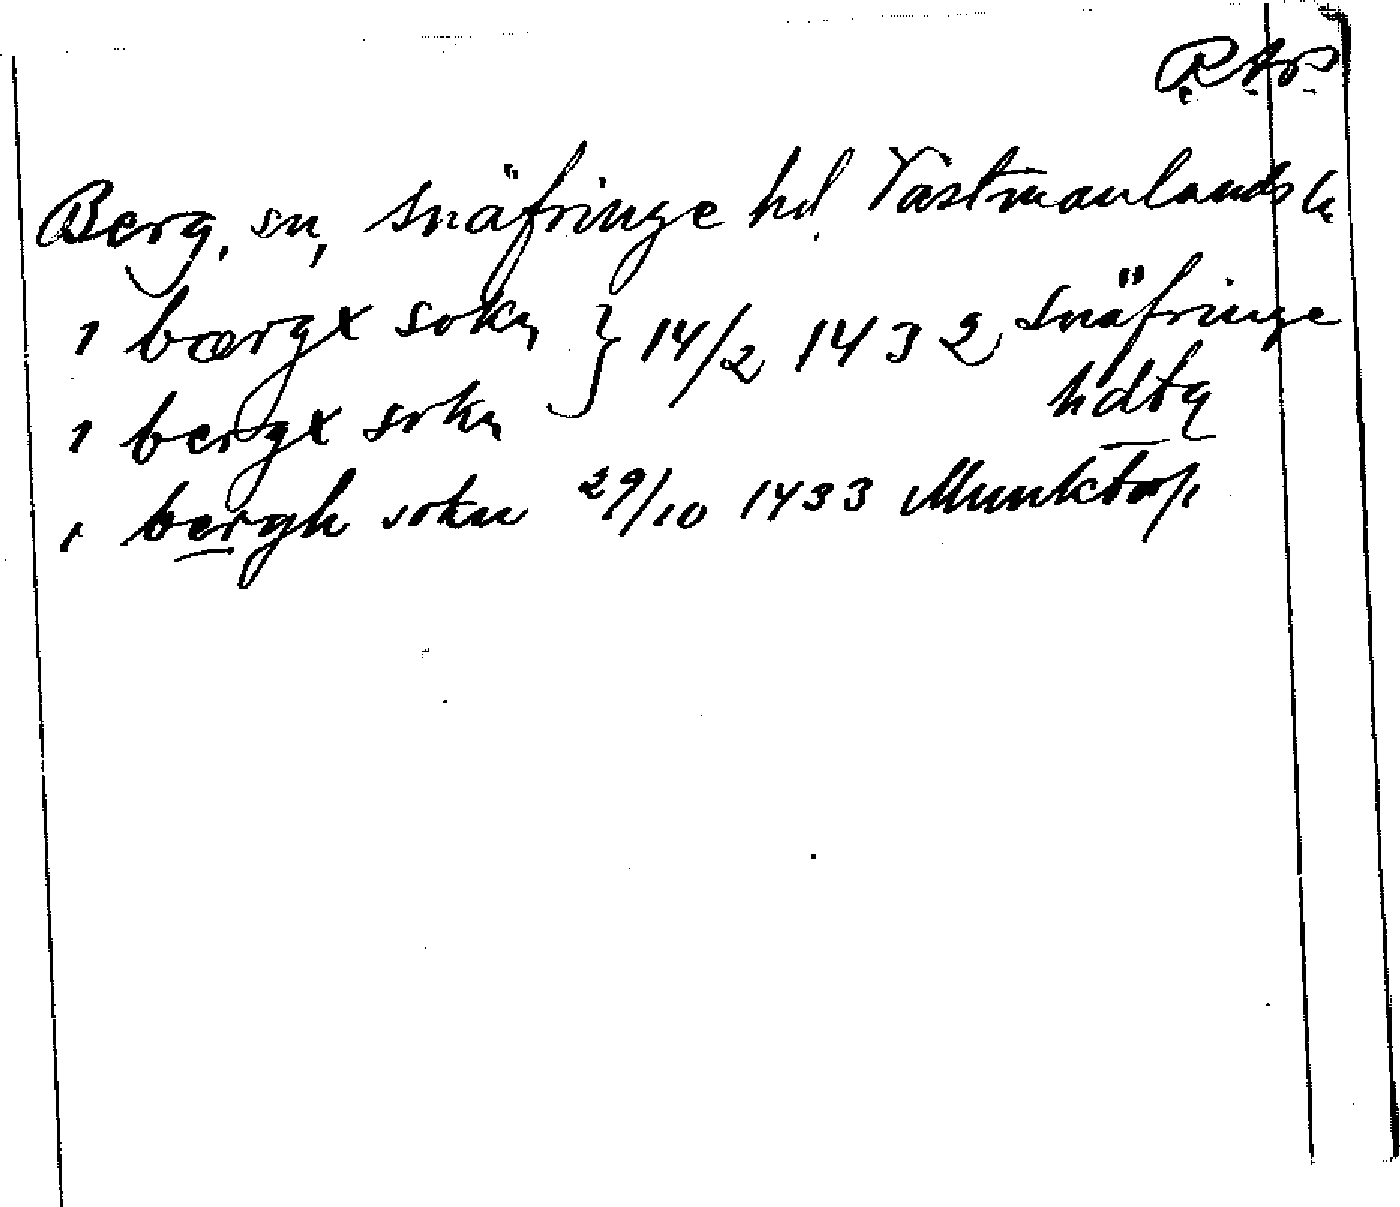 R.A.P.
Berg, sn, Snäfringe hd. Västmanlands l.
i bœrgx sokn } 14/2 1432 Snäfringe
i bergx sokn hdtg
i bergh sokn 29/10 1433 Munktorp